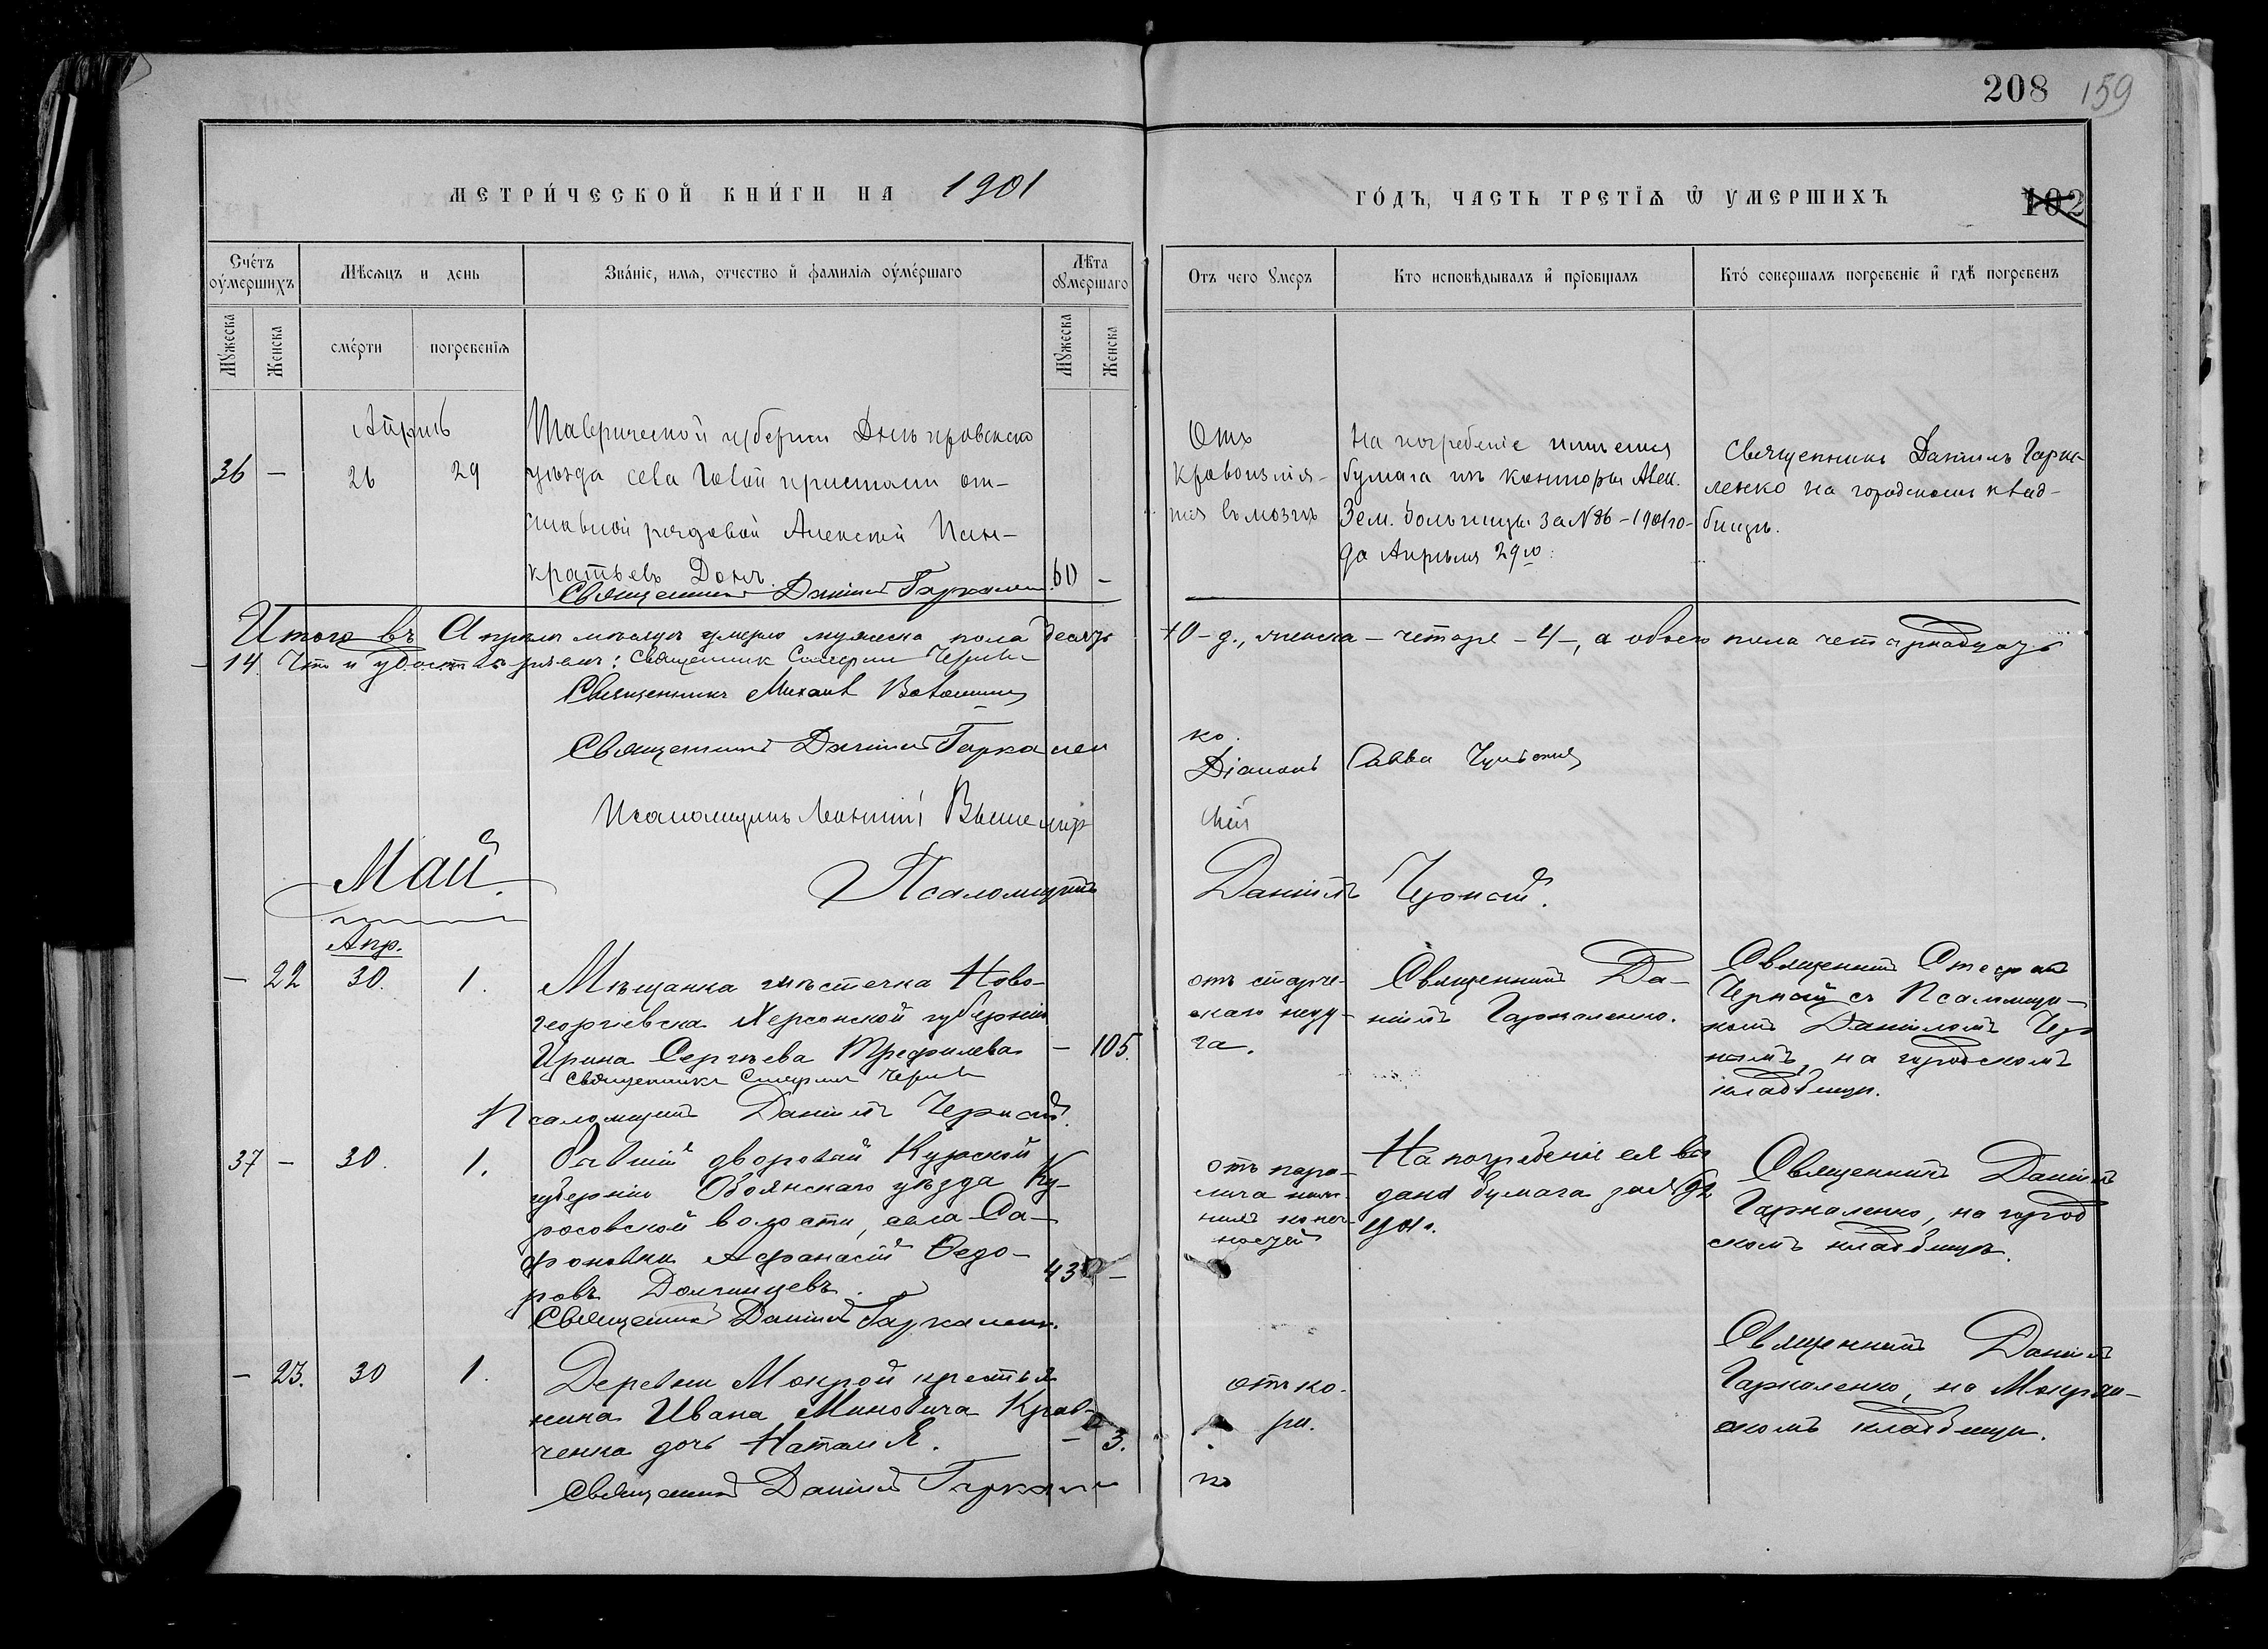 208 159
МЕТРИ́ЧЕСКОЙ КНИ́ГИ НА 1901
ГО́ДЪ, ЧАСТЬ ТРЕТІѦ Ѿ УМЕРШИХЪ
102
Сче́тъ оу҆́мершихъ
Мѣсѧцъ и день
Зва́нїе, имѧ, отчество и҆ фамилїѧ оу҆ме́ршаго
Лѣта оумершаго
Отъ чего умеръ
Кто исповѣдывалъ и҆ прїобщалъ
Кто́ совершалъ погребенїе и҆ гдѣ погребенъ
Мужеска
Женска
сме́рти
погребенїѧ
Мужеска
Женска
Апрѣль
36 – 26 29
Таврической губерніи Днѣпровскаго
уѣзда села Голой пристани от-
ставной рядовой Алексѣй Пан-
кратьевъ Донъ. 60 –
Священникъ Даніилъ Гаркален
Отъ
кровоизлія-
нія въ мозгъ
На погребеніе имѣется
бумага изъ конторы Алек.
Зем. больницы за № 86 – 1901 го-
да Апрѣля 29го.
Священникъ Даніилъ Гарка-
ленко на городскомъ клад-
бищѣ.
Итого въ Апрѣлѣ мѣсяцѣ умерло мужеска пола десять
10 – д., женска – четыре – 4 –, а обоего пола четырнадцать
– 14. Что и удостовѣряемъ: Священник Стефан Черный
Священникъ Михаилъ
Священникъ Даніилъ Гаркален
ко.
Діаконъ Савва
Псаломщикъ Леонтій Вышемір
скій
Май.
Псаломщикъ
Даніилъ Черный.
Апр.
– 22 30. 1.
Мѣщанка мѣстечка Ново-
георгіевска Херсонской губерніи
Ирина Сергѣева Трефилева – 105.
Священникъ Стефан Черный
Псаломщикъ Даніилъ Черный.
отъ старче-
скаго неду-
га.
Священникъ Да-
ніилъ Гаркаленко.
Священникъ Стефанъ
Черный съ Псаломщи-
комъ Даніиломъ Чер
нымъ, на городскомъ
кладбищѣ.
37 – 30. 1.
Бывшій дворовый Курской
губерніи Обоянскаго уѣзда
волости, села Са-
фоновки Афанасій Ѳедо-
ровъ Долгинцевъ. 43 –
Священникъ Даніилъ Гаркаленк.
отъ пара-
лича ниж-
нихъ конеч-
ностей
На погребеніе ея вы
дана бумага за № 92
Священникъ Даніилъ
Гаркаленко, на город
скомъ кладбищѣ.
– 23. 30 1.
Деревни Мокрой крестья
нина Ивана Миновича Крав-
ченка дочь Наталія. – 3.
Священникъ Даніилъ Гаркален
ко
отъ ко-
ри.
Священникъ Даніилъ
Гаркаленко, на Мокрян-
скомъ кладбищѣ.